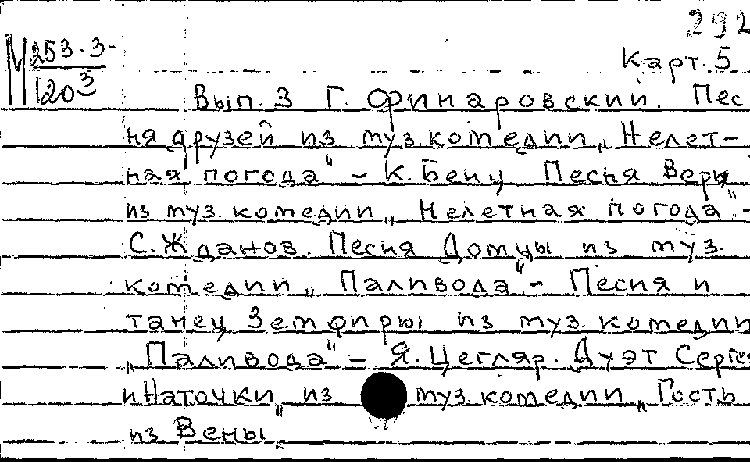 292
М 253-3-
120³
Карт. 5
Вып. 3 Г. Финаровский. Пес
ня друзей из муз комедии „Нелет-
ная погода" - К. Бенц Песня Веры
из муз комедии „Нелетная погода" -
С. Жданов. Песня Домцы из муз.
комедии „Паливода" - Песня и
танец Земфиры из муз комедии
„Паливода" - Я. Цегляр. Дуэт Сергея
и Наточки из муз комедии „Гость
из Вены„